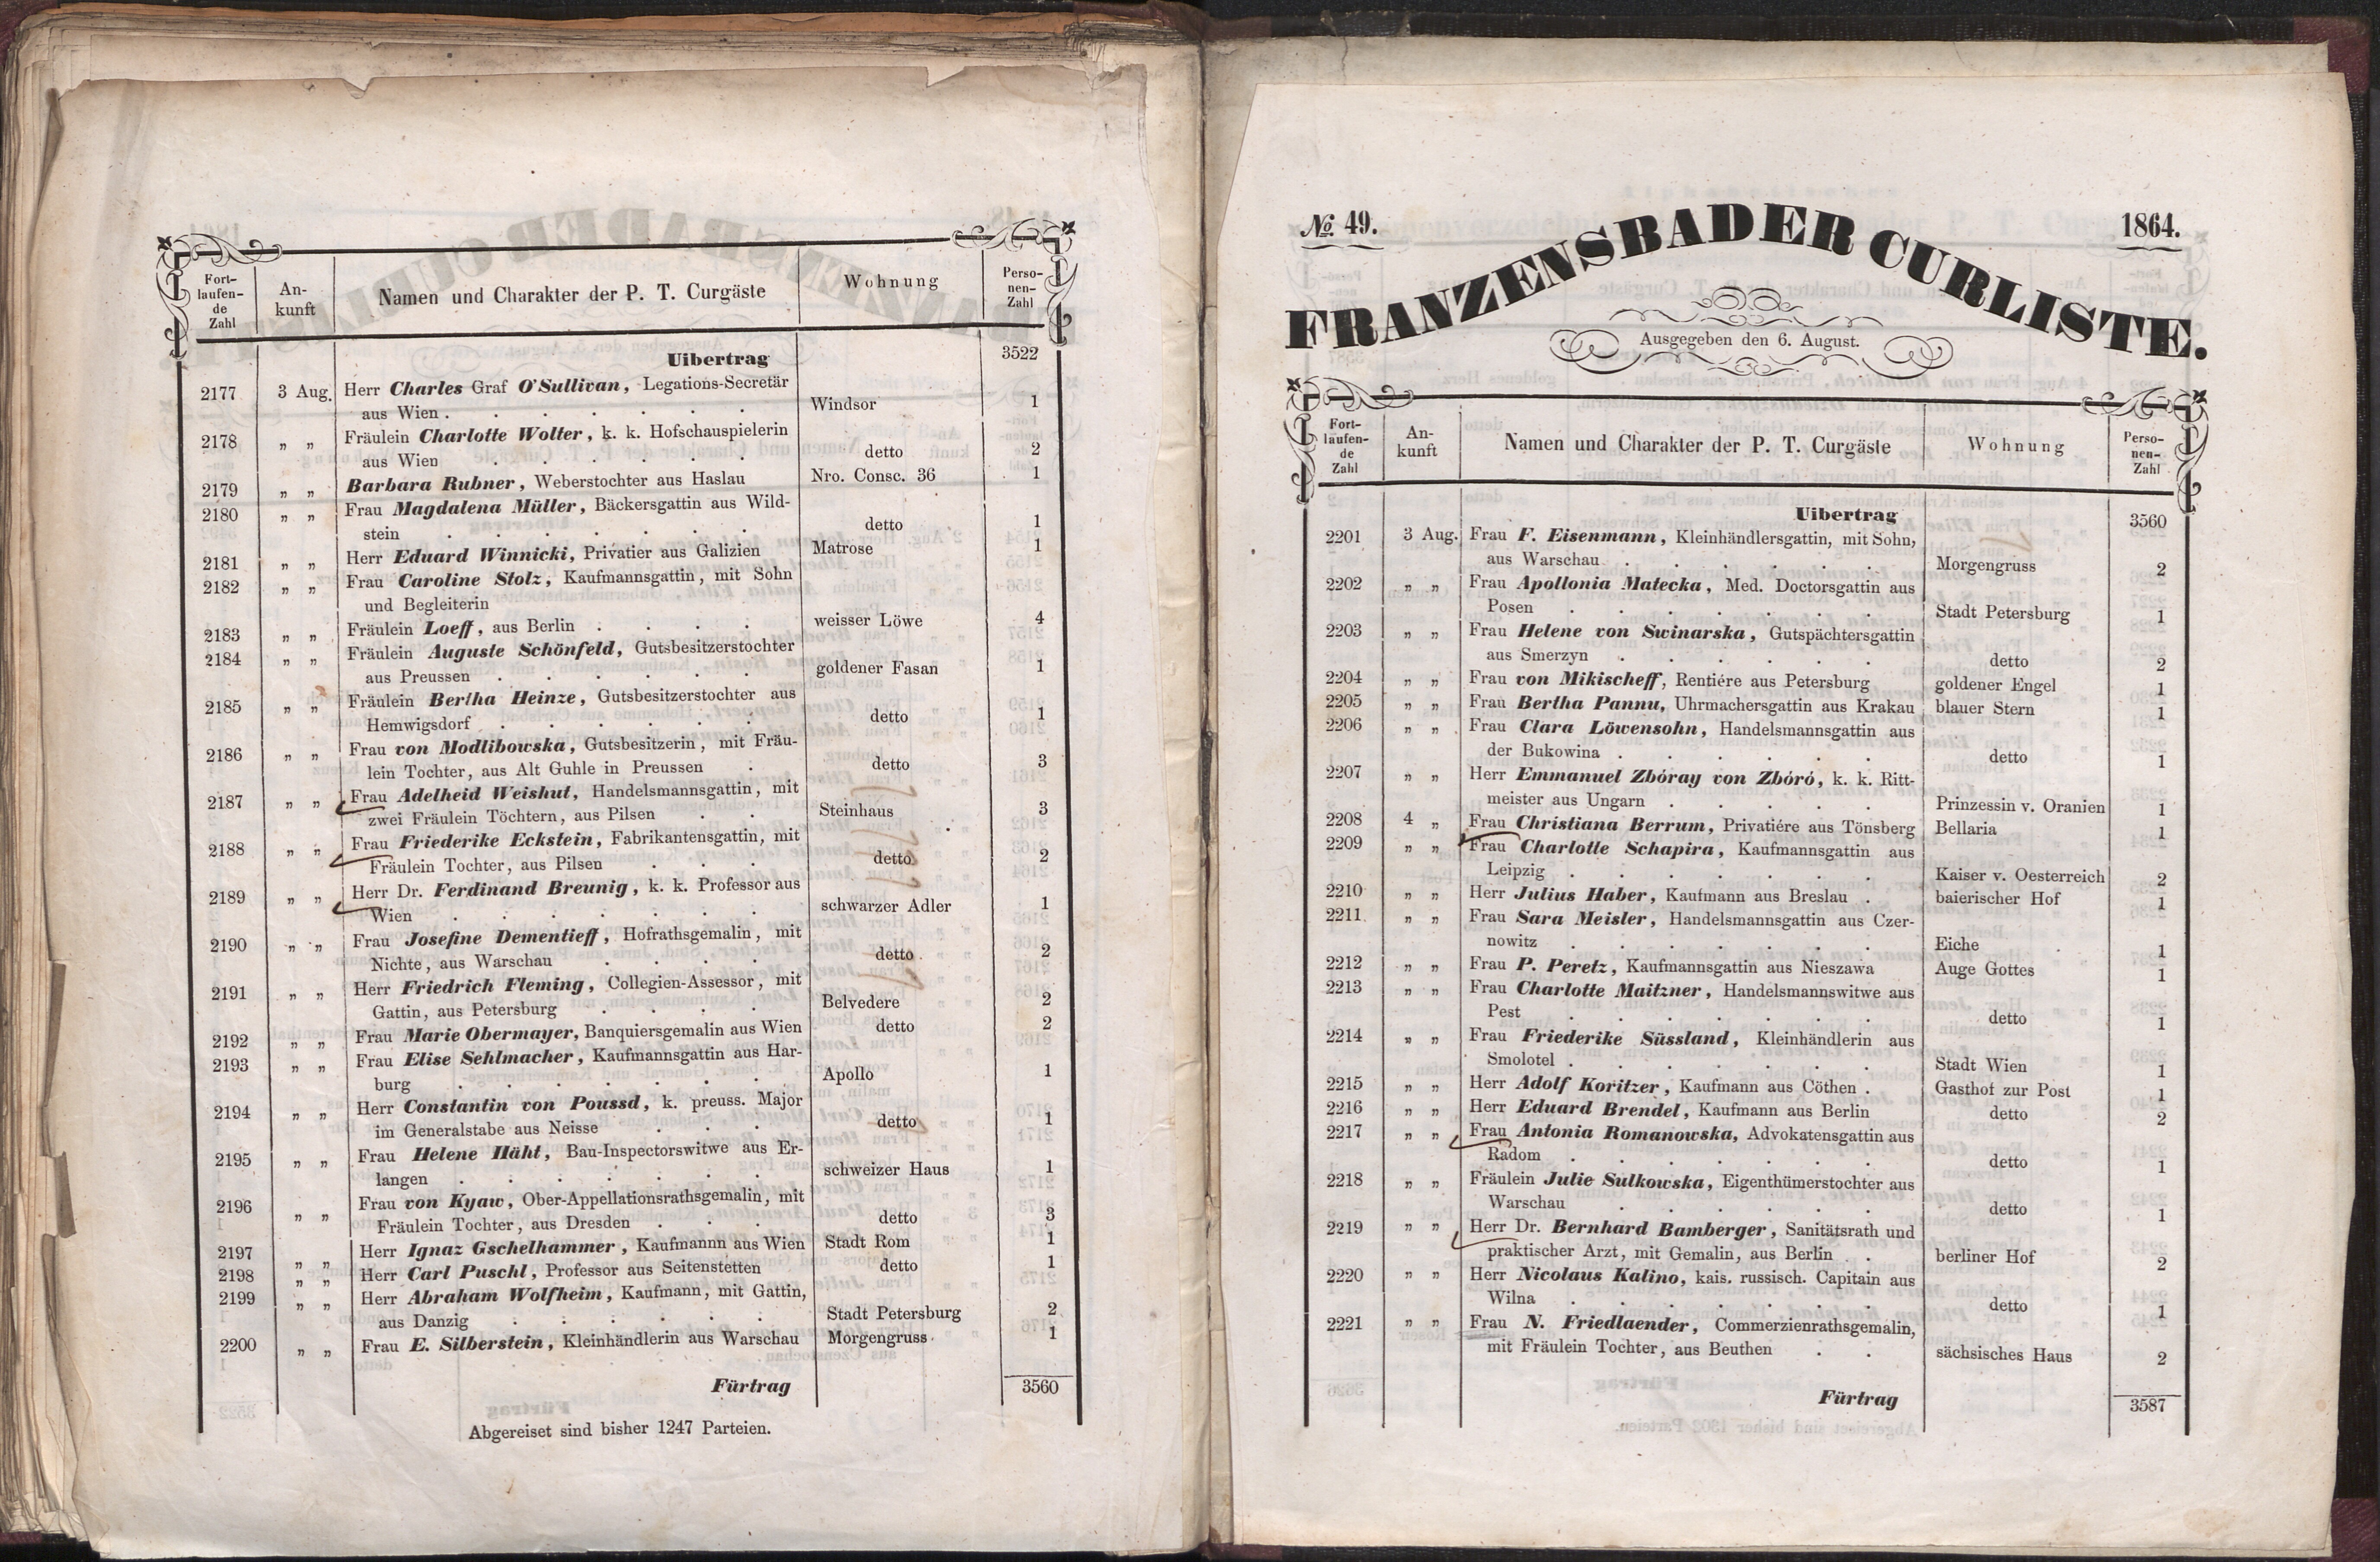 Fort-laufen-de Zahl An-kunft Namen und Charakter der P. T. Curgäste Wohnung Perso-nen-Zahl
Uibertrag 3522
2177 3 Aug. Herr Charles Graf O'Sullivan, Legations-Secretär
aus Wien . . . . . . . Windsor 1
2178 „ „ Fräulein Charlotte Wolter, k. k. Hofschauspielerin
aus Wien . . . . . . detto 2
2179 „ „ Barbara Rubner, Weberstochter aus Haslau Nro. Consc. 36 1
2180 „ „ Frau Magdalena Müller, Bäckersgattin aus Wild-
stein . . . . . . . detto 1
2181 „ „ Herr Eduard Winnicki, Privatier aus Galizien Matrose 1
2182 „ „ Frau Caroline Stolz, Kaufmannsgattin, mit Sohn
und Begleiterin
2183 „ „ Fräulein Loeff, aus Berlin . . . . weisser Löwe 4
2184 „ „ Fräulein Auguste Schönfeld, Gutsbesitzerstochter
aus Preussen . . . . . . goldener Fasan 1
2185 „ „ Fräulein Bertha Heinze, Gutsbesitzerstochter aus
Hemwigsdorf . . . . . . detto 1
2186 „ „ Frau von Modlibowska, Gutsbesitzerin, mit Fräu-
lein Tochter, aus Alt Guhle in Preussen . detto 3
2187 „ „ Frau Adelheid Weishut, Handelsmannsgattin, mit
zwei Fräulein Töchtern, aus Pilsen . . Steinhaus 3
2188 „ „ Frau Friederike Eckstein, Fabrikantensgattin, mit
Fräulein Tochter, aus Pilsen . . . detto 2
2189 „ „ Herr Dr. Ferdinand Breunig, k. k. Professor aus
Wien . . . . . . . schwarzer Adler 1
2190 „ „ Frau Josefine Dementieff, Hofrathsgemalin, mit
Nichte, aus Warschau . . . . detto 2
2191 „ „ Herr Friedrich Fleming, Collegien-Assessor, mit
Gattin, aus Petersburg . . . . Belvedere 2
2192 „ „ Frau Marie Obermayer, Banquiersgemalin aus Wien detto 2
2193 „ „ Frau Elise Sehlmacher, Kaufmannsgattin aus Har-
burg . . . . . . . Apollo 1
2194 „ „ Herr Constantin von Poussd, k. preuss. Major
im Generalstabe aus Neisse . . . detto 1
2195 „ „ Frau Helene Häht, Bau-Inspectorswitwe aus Er-
langen . . . . . . . schweizer Haus 1
2196 „ „ Frau von Kyaw, Ober-Appellationsrathsgemalin, mit
Fräulein Tochter, aus Dresden . . . detto 3
2197 „ „ Herr Ignaz Gschelhammer, Kaufmannn aus Wien Stadt Rom 1
2198 „ „ Herr Carl Puschl, Professor aus Seitenstetten detto 1
2199 „ „ Herr Abraham Wolfheim, Kaufmann, mit Gattin,
aus Danzig . . . . . . Stadt Petersburg 2
2200 „ „ Frau E. Silberstein, Kleinhändlerin aus Warschau Morgengruss 1
Fürtrag 3560
Abgereiset sind bisher 1247 Parteien.
No. 49. 1864.
FRANZENSBADER CURLISTE.
Ausgegeben den 6. August.
Fort-laufen-de Zahl An-kunft Namen und Charakter der P. T. Curgäste Wohnung Perso-nen-Zahl
Uibertrag 3560
2201 3 Aug. Frau F. Eisenmann, Kleinhändlersgattin, mit Sohn,
aus Warschau . . . . . . Morgengruss 2
2202 „ „ Frau Apollonia Matecka, Med. Doctorsgattin aus
Posen . . . . . . . Stadt Petersburg 1
2203 „ „ Frau Helene von Swinarska, Gutspächtersgattin
aus Smerzyn . . . . . . detto 2
2204 „ „ Frau von Mikischeff, Rentiére aus Petersburg goldener Engel 1
2205 „ „ Frau Bertha Pannu, Uhrmachersgattin aus Krakau blauer Stern 1
2206 „ „ Frau Clara Löwensohn, Handelsmannsgattin aus
der Bukowina . . . . . . detto 1
2207 „ „ Herr Emmanuel Zbóray von Zbóró, k. k. Ritt-
meister aus Ungarn . . . . . Prinzessin v. Oranien 1
2208 4 „ Frau Christiana Berrum, Privatiére aus Tönsberg Bellaria 1
2209 „ „ Frau Charlotte Schapira, Kaufmannsgattin aus
Leipzig . . . . . . . Kaiser v. Oesterreich 2
2210 „ „ Herr Julius Haber, Kaufmann aus Breslau . baierischer Hof 1
2211 „ „ Frau Sara Meisler, Handelsmannsgattin aus Czer-
nowitz . . . . . . . Eiche 1
2212 „ „ Frau P. Peretz, Kaufmannsgattin aus Nieszawa Auge Gottes 1
2213 „ „ Frau Charlotte Maitzner, Handelsmannswitwe aus
Pest . . . . . . . detto 1
2214 „ „ Frau Friederike Süssland, Kleinhändlerin aus
Smolotel . . . . . . . Stadt Wien 1
2215 „ „ Herr Adolf Koritzer, Kaufmann aus Cöthen . Gasthof zur Post 1
2216 „ „ Herr Eduard Brendel, Kaufmann aus Berlin detto 2
2217 „ „ Frau Antonia Romanowska, Advokatensgattin aus
Radom . . . . . . . detto 1
2218 „ „ Fräulein Julie Sulkowska, Eigenthümerstochter aus
Warschau . . . . . . detto 1
2219 „ „ Herr Dr. Bernhard Bamberger, Sanitätsrath und
praktischer Arzt, mit Gemalin, aus Berlin . berliner Hof 2
2220 „ „ Herr Nicolaus Kalino, kais. russisch. Capitain aus
Wilna . . . . . . . detto 1
2221 „ „ Frau N. Friedlaender, Commerzienrathsgemalin,
mit Fräulein Tochter, aus Beuthen . . sächsisches Haus 2
Fürtrag 3587